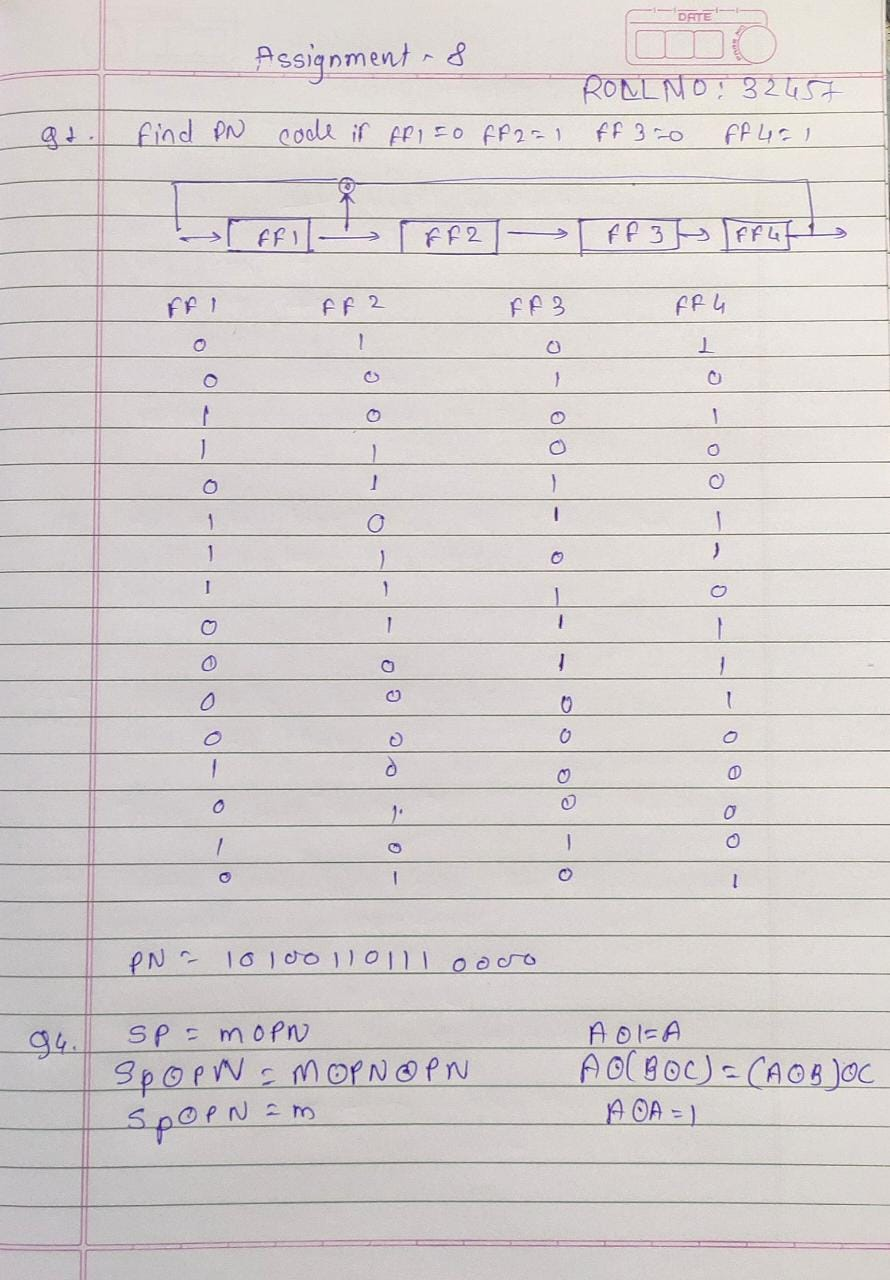 DATE
Assignment - 8
ROLL NO: 32457
Q1. Find PN code if FF1=0 FF2=1 FF3=0 FF4=1
⊙
FF1 FF2 FF3 FF4
FF1 FF2 FF3 FF4
0 1 0 1
0 0 1 0
1 0 0 1
1 1 0 0
0 1 1 0
1 0 1 1
1 1 0 1
1 1 1 0
0 1 1 1
0 0 1 1
0 0 0 1
0 0 0 0
1 0 0 0
0 1 0 0
1 0 1 0
0 1 0 1
PN = 10100110111 0000
Q4. SP = m⊙PN A⊙1=A
Sp⊙PN = M⊙PN⊙PN A⊙(B⊙C)=(A⊙B)⊙C
Sp⊙PN = m A⊙A=1